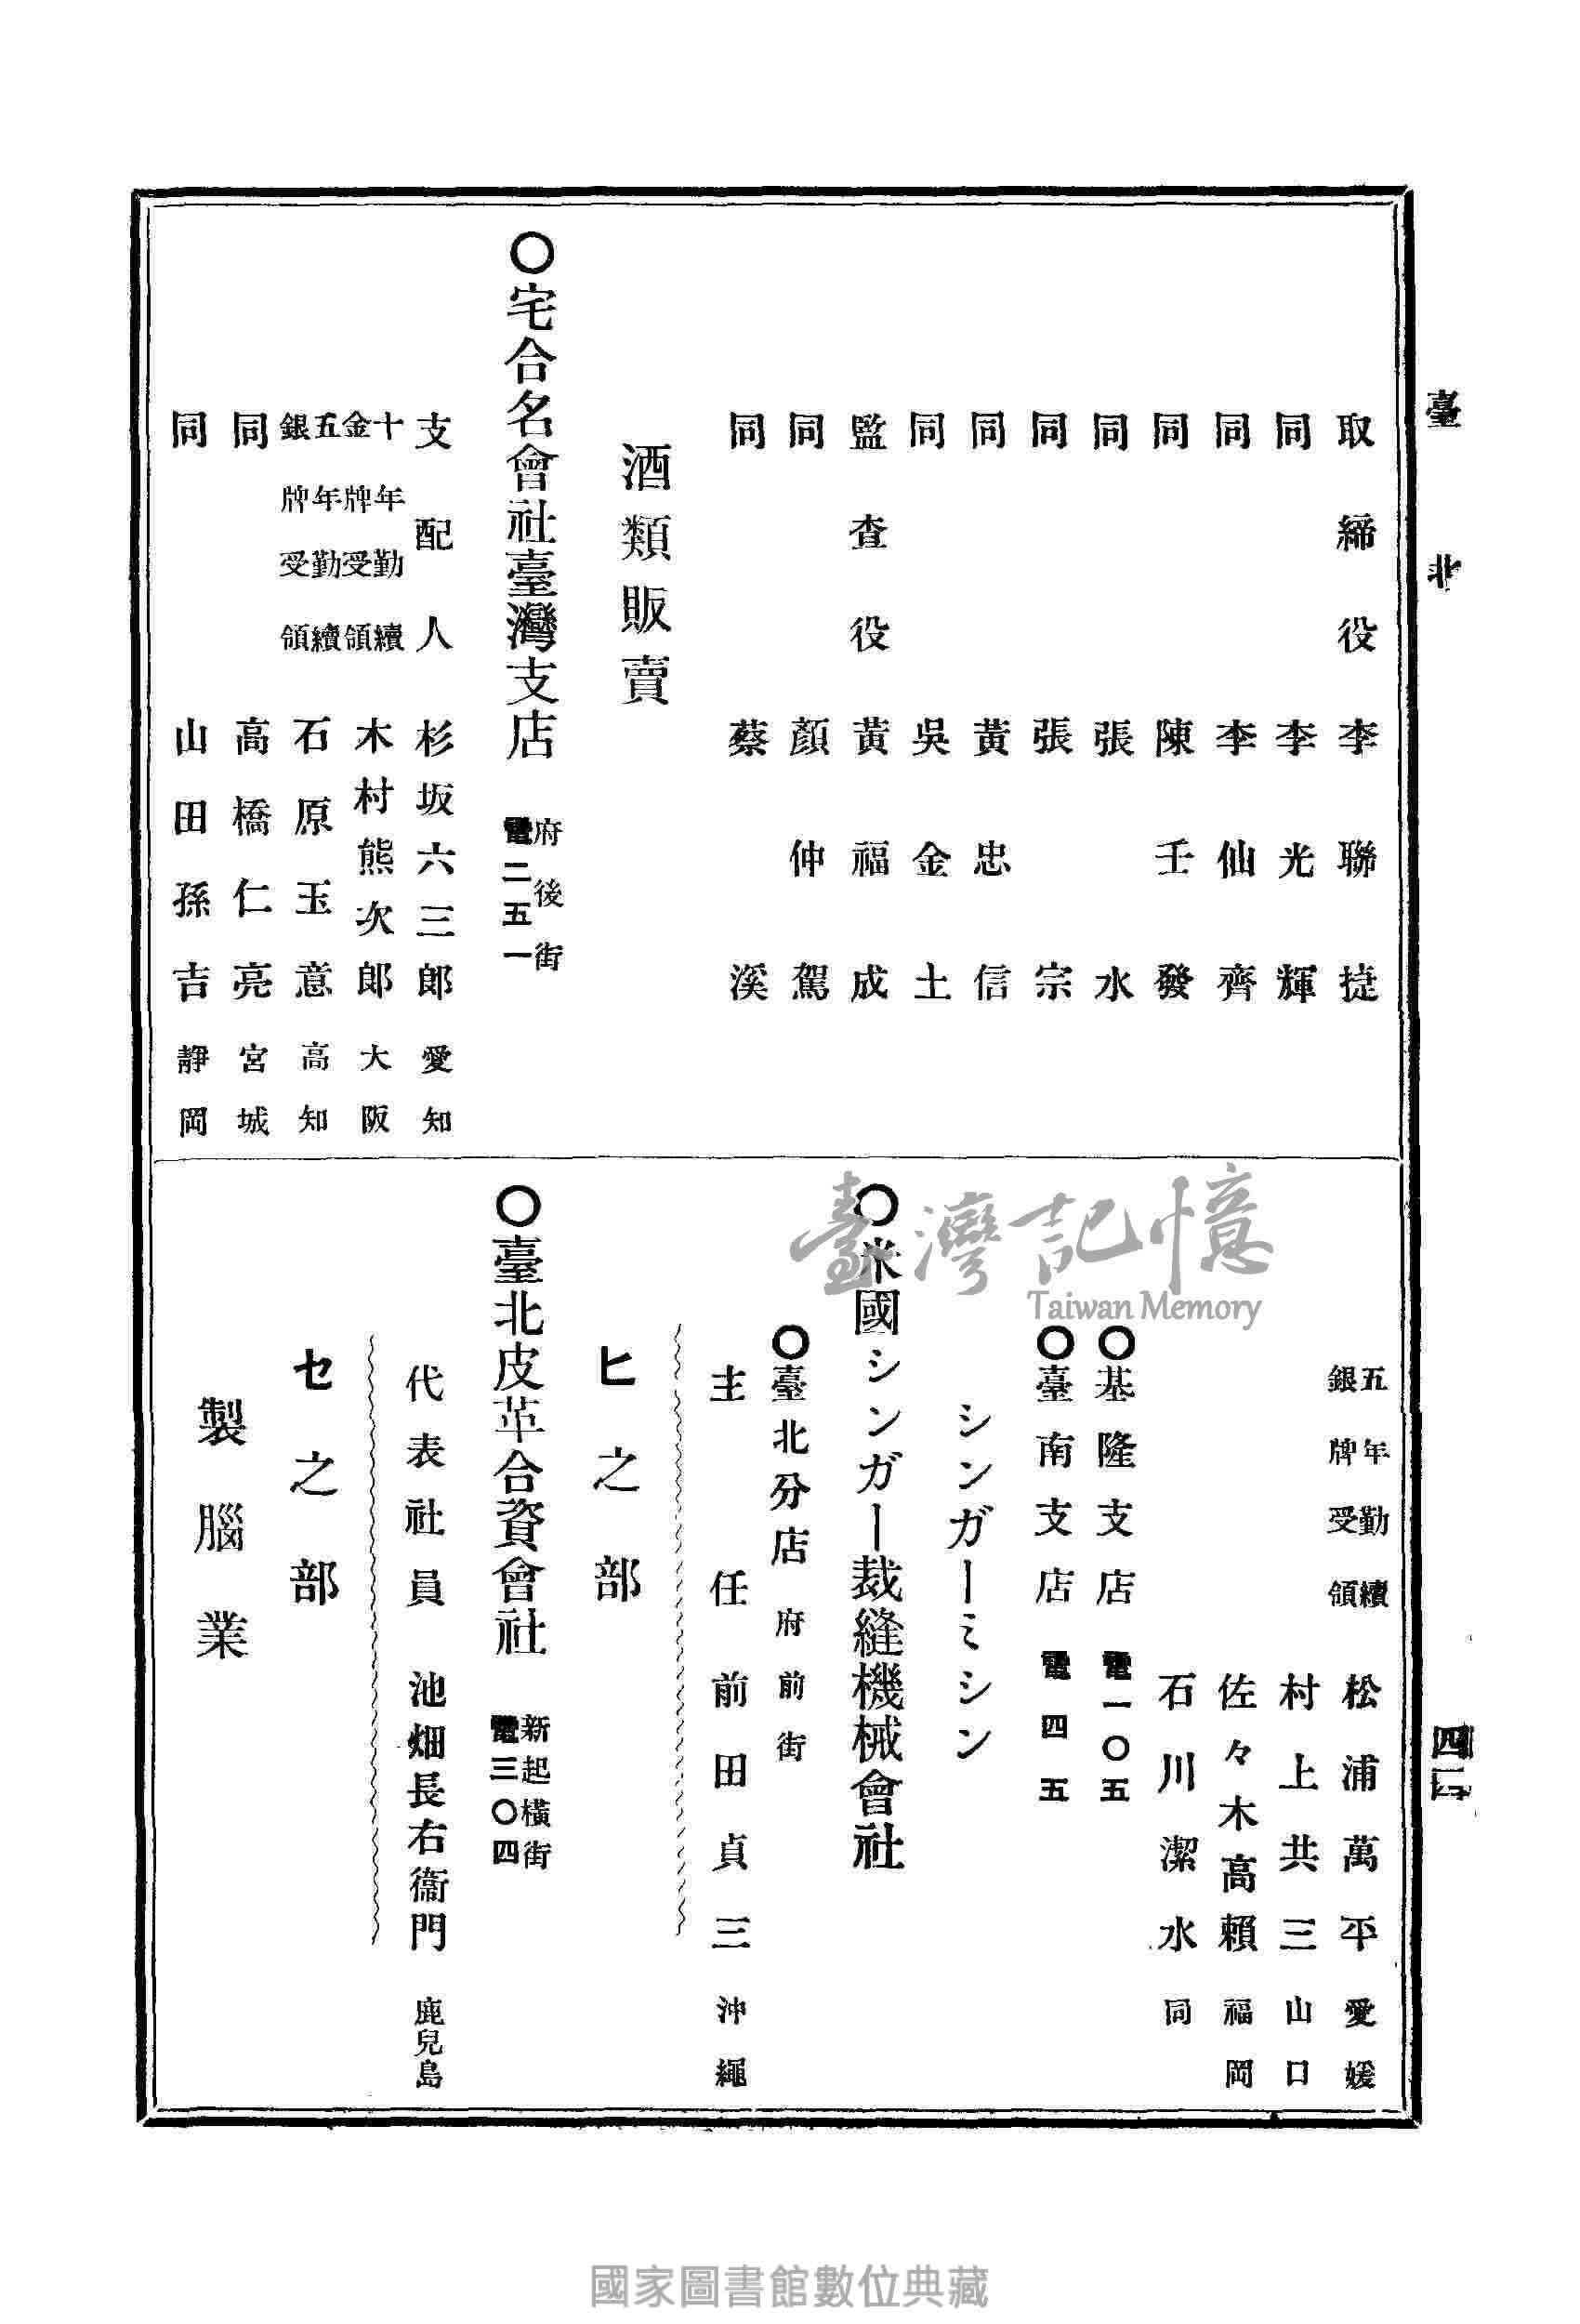 臺北
取締役 李聯捷
同 李光輝
同 李仙齊
同 陳壬發
同 張水
同 張宗
同 黃忠信
同 吳金土
監查役 黃福成
同 顏仲駕
同 蔡溪
酒類販賣
〇宅合名會社臺灣支店 府後街 電二五一
支配人 杉坂六三郎 愛知
十年勤續金牌受領 木村熊次郎 大阪
五年勤續銀牌受領 石原玉意 高知
同 高橋仁亮 宮城
同 山田孫吉 靜岡
五年勤續銀牌受領 松浦萬平 愛媛
村上共三 山口
佐々木高賴 福岡
石川潔水 同
〇基隆支店 電一〇五
〇臺南支店 電四五
シンガーミシン
〇米國シンガー裁縫機械會社
〇臺北分店 府前街
主任 前田貞三 沖繩
ヒ之部
〇臺北皮革合資會社 新起橫街 電三〇四
代表社員 池畑長右衞門 鹿兒島
セ之部
製腦業
臺灣記憶
Taiwan Memory
國家圖書館數位典藏